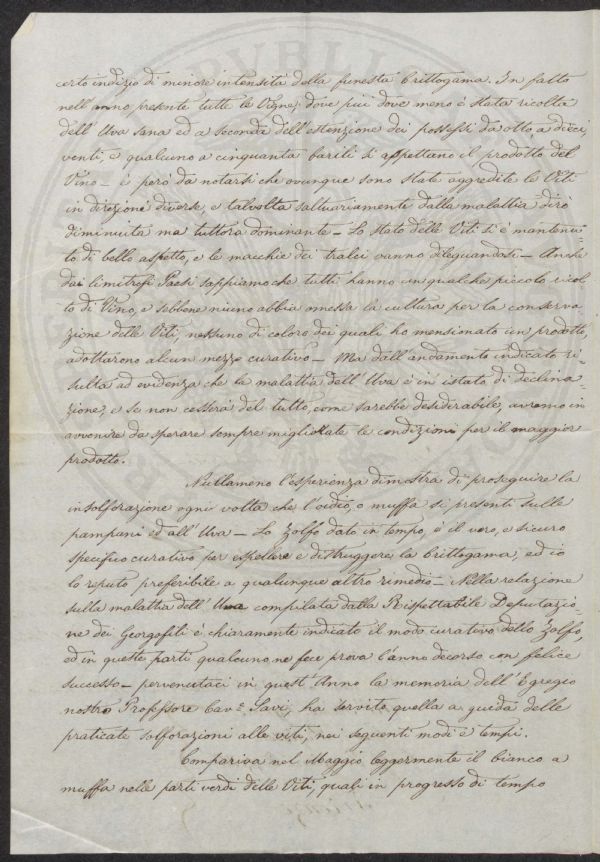 certo indizio di minore intensità della funesta Crittogama. In fatto
nell'anno presente tutte le Vigne, dove più dove meno è stata ricolta
dell'Uva sana ed a seconda dell'estenzione dei possessi da otto a dieci,
venti, e qualcuno a cinquanta barili si aspettano il prodotto del
Vino – è però da notarsi che ovunque sono state aggredite le Viti
in direzione diverse, e talvolta saltuariamente dalla malattia dirò
diminuita ma tuttora dominante – Lo stato delle Viti si è mantenu-
to di bello aspetto, e le macchie dei tralci vanno dileguandosi – Anche
dai limitrofi Paesi sappiamo che tutti hanno un qualche piccolo ricol-
to di Vino, e sebbene niuno abbia omessa la cultura per la conserva-
zione delle Viti, nessuno di coloro dei quali ho mensionato un prodotto,
adottarono alcun mezzo curativo – Ma dall'andamento indicato ri-
sulta ad evidenza che la malattia dell'Uva è in istato di declina-
zione, e se non cesserà del tutto, come sarebbe desiderabile, avremo in
avvenire da sperare sempre migliorate le condizioni per il maggior
prodotto.
Nullameno l'esperienza dimostra di proseguire la
insolforazione ogni volta che l'oidio, o muffa si presenti sulle
pampani ed all'Uva – Lo Zolfo dato in tempo, è il vero, e sicuro
specifico curativo per espellere e distruggere la Crittogama, ed io
lo reputo preferibile a qualunque altro rimedio – Nella relazione
sulla malattia dell'Uva compilata dalla Rispettabile Deputazio-
ne dei Georgofili è chiaramente indicato il modo curativo dello Zolfo,
ed in queste parti qualcuno ne fece prova l'anno decorso con felice
successo – pervenutaci in quest'Anno la memoria dell'Egregio
nostro Professore Cav.e Savi, ha servito quella a guida delle
praticate solforazioni alle viti, nei seguenti modi e tempi.
Compariva nel Maggio leggermente il bianco a
muffa nelle parti verdi delle Viti, quali in progresso di tempo